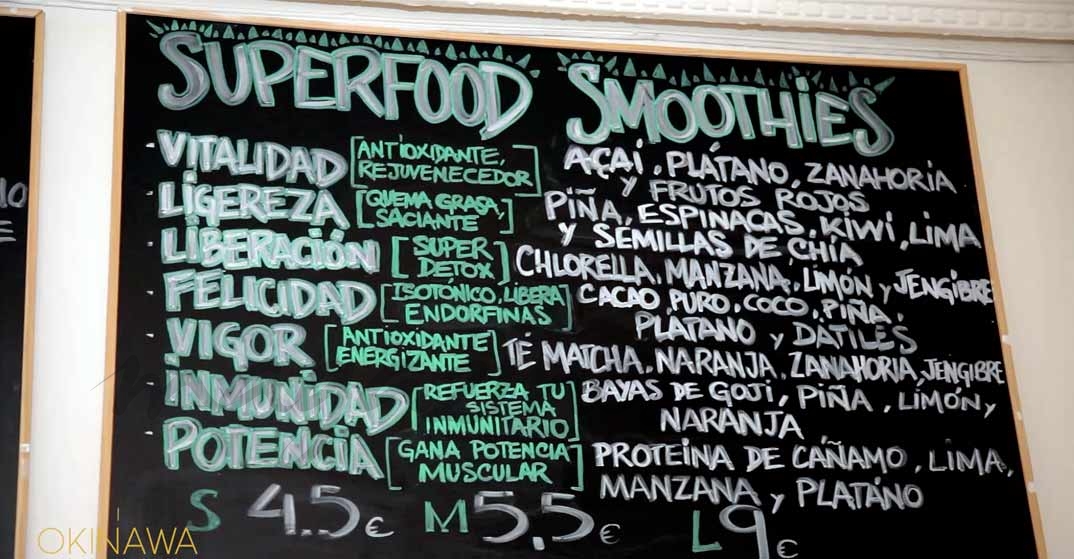 SUPERFOOD SMOOTHIES
VITALIDAD [ANTIOXIDANTE, REJUVENECEDOR] AÇAÍ, PLÁTANO, ZANAHORIA
Y FRUTOS ROJOS
LIGEREZA [QUEMA GRASA, SACIANTE] PIÑA, ESPINACAS, KIWI, LIMA
Y SEMILLAS DE CHÍA
LIBERACIÓN [SUPER DETOX] CHLORELLA, MANZANA, LIMÓN y JENGIBRE
FELICIDAD [ISOTÓNICO, LIBERA ENDORFINAS] CACAO PURO, COCO, PIÑA,
PLÁTANO y DÁTILES
VIGOR [ANTIOXIDANTE ENERGIZANTE] TÉ MATCHA, NARANJA, ZANAHORIA, JENGIBRE
INMUNIDAD [REFUERZA TU SISTEMA INMUNITARIO] BAYAS DE GOJI, PIÑA, LIMÓN y
NARANJA
POTENCIA [GANA POTENCIA MUSCULAR] PROTEÍNA DE CÁÑAMO, LIMA,
MANZANA y PLATÁNO
S 4.5€ M 5,5€ L 9€
OKINAWA